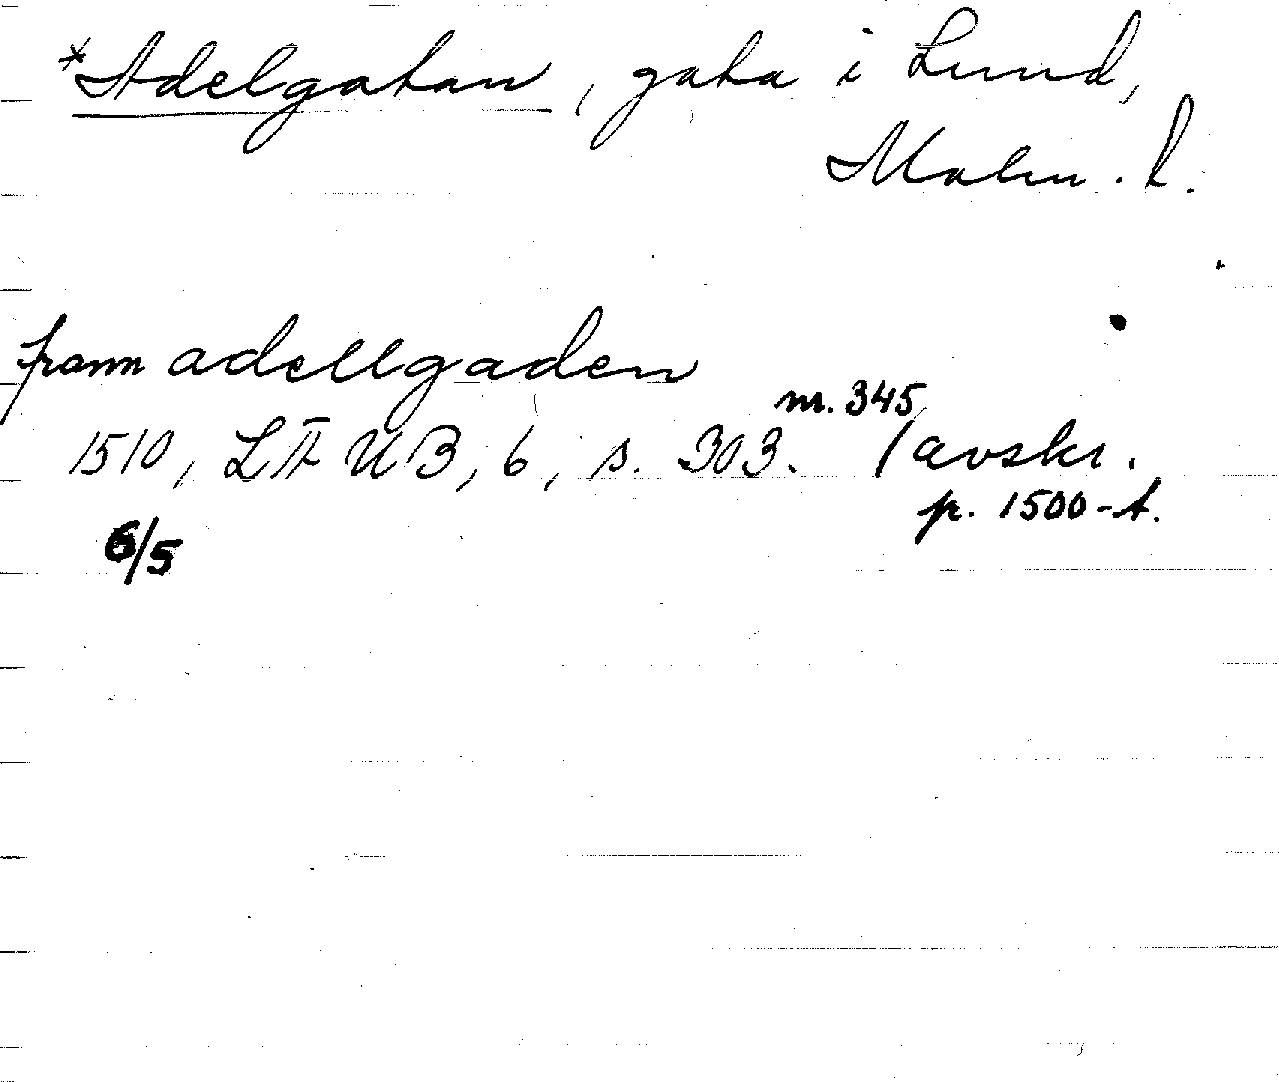 *Adelgatan, gata i Lund,
Malm. l.
frann adellgaden
nr. 345
1510, LÄUB, 6, s. 303. /avskr.
p. 1500-t.
6/5